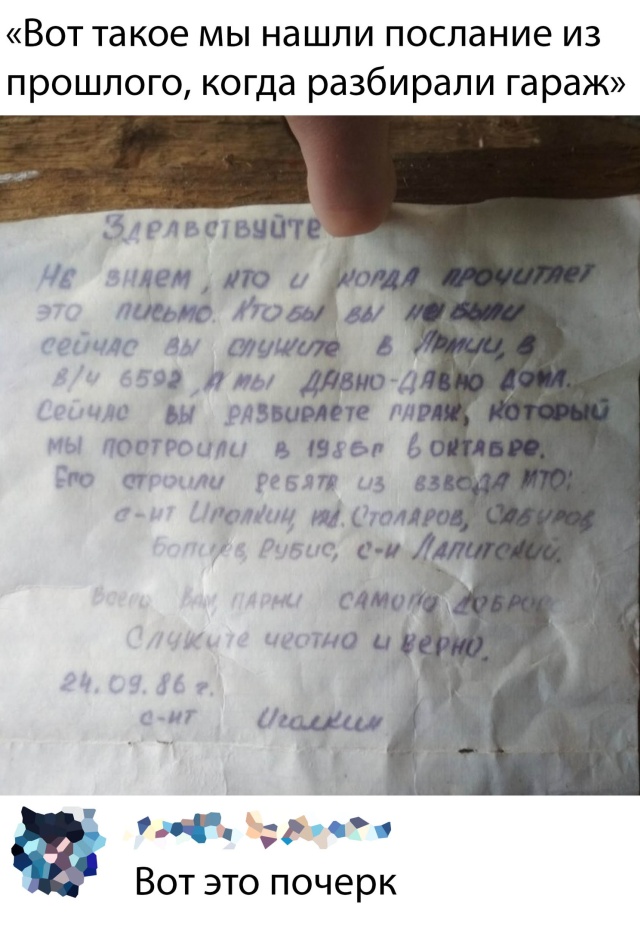 «Вот такое мы нашли послание из
прошлого, когда разбирали гараж»
Здравствуйте
Не знаем, кто и когда прочитает
это письмо. Кто бы вы не были
сейчас вы служите в Армии, в
в/ч 6592, а мы давно-давно дома.
Сейчас вы разбираете гараж, который
мы построили в 1986г в октябре.
Его строили ребята из взвода МТО:
с-нт Иголкин, мл. Столяров, Сабуров,
Рубис, с-н Лапитский.
Всего вам парни самого доброго
Служите честно и верно.
24.09.86 г.
с-нт Иголкин
Вот это почерк